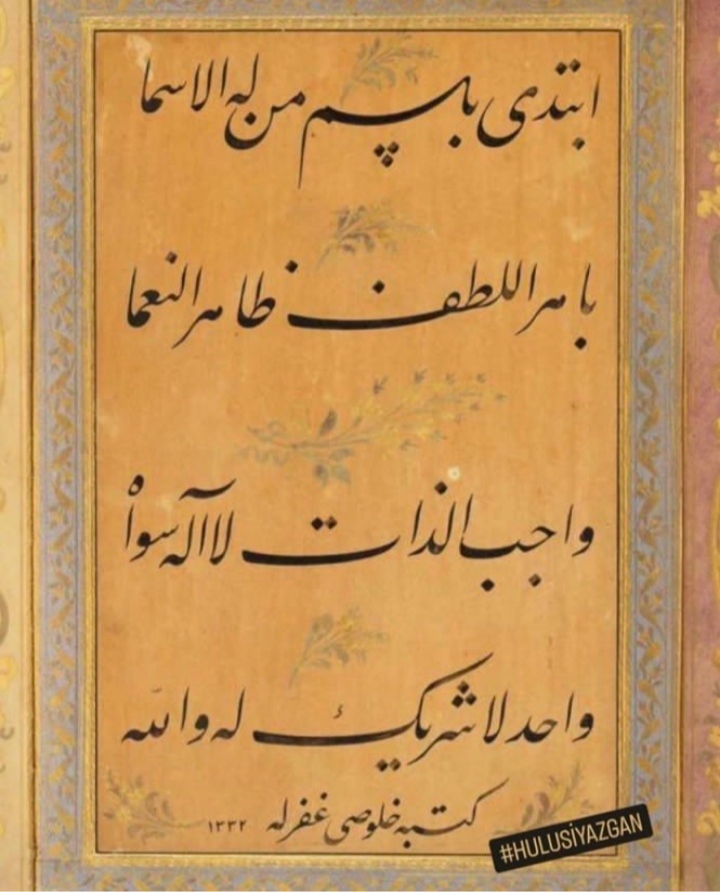 ابتدى باسم من له الاسما
باهر اللطف ظاهر النعما
واجب الذات لا اله سواه
واحد لا شريك له والله
كتبه خلوصى غفر له ١٣٣٢
#HULUSİYAZGAN